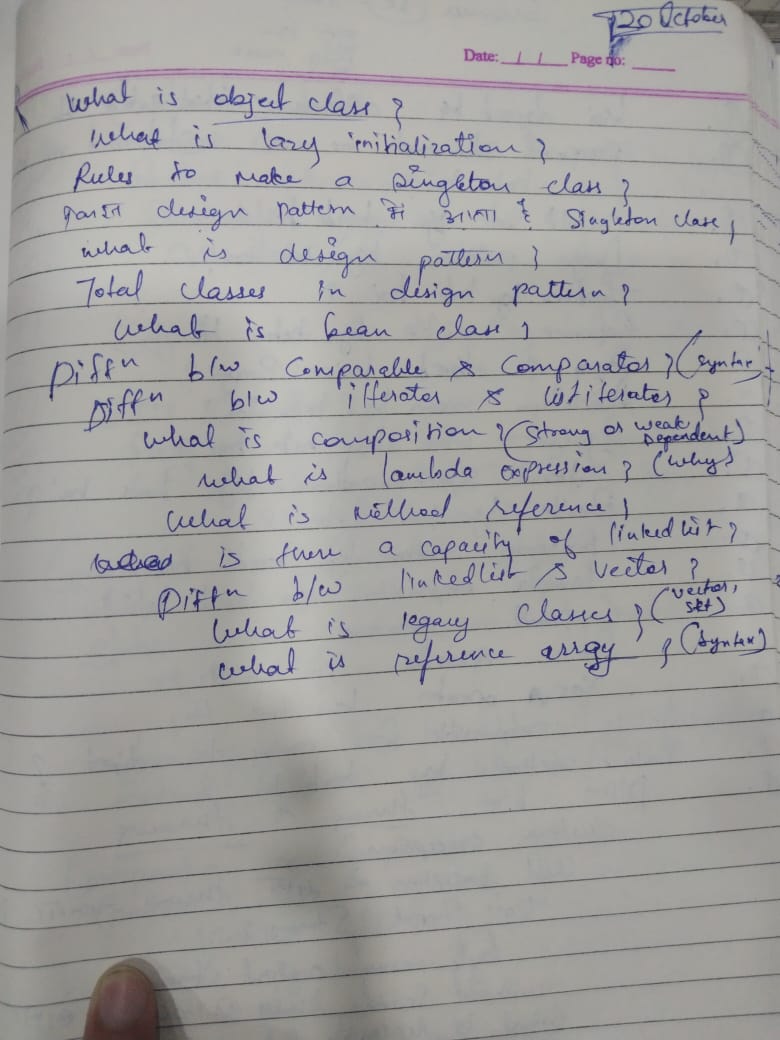 20 October
Date: / / Page no:
What is object class ?
What is lazy initialization ?
Rules to make a singleton class ?
design pattern में आता है Singleton class,
what is design pattern ?
Total classes in design pattern ?
What is bean class ?
Diffn b/w Comparable & Comparator ? (syntax)
Diffn b/w itterator & listiterator ?
What is composition ? (Strong or weak Dependent)
what is lambda expression ? (why)
What is method reference ?
is there a capacity of linked list ?
Diffn b/w linkedlist & vector ?
What is legacy classes ? (vector,
What is reference array ? (Syntax)